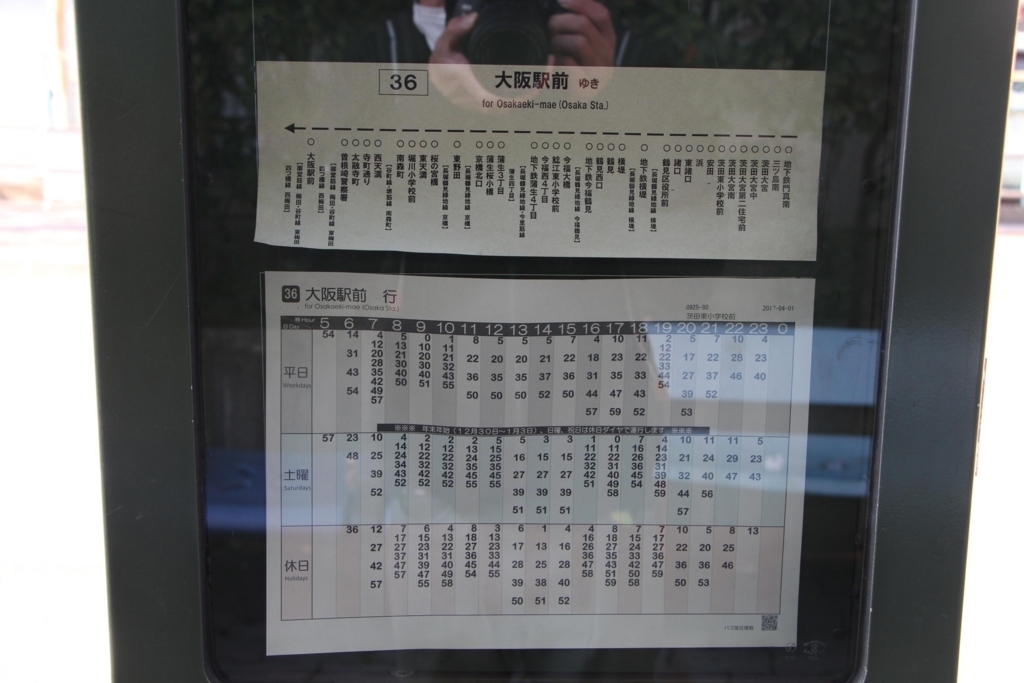 36
大阪駅前 ゆき
for Osakaeki-mae (Osaka Sta.)
地下鉄門真南
三ツ島南
茨田大宮
茨田大宮中
茨田大宮第二住宅前
茨田大宮南
茨田東小学校前
安田
浜
東諸口
諸口
鶴見区役所前
地下鉄横堤
横堤
鶴見
鶴見西口
地下鉄今福鶴見
今福大橋
鯰江東小学校前
今福西4丁目
地下鉄蒲生4丁目
蒲生3丁目
蒲生桜小橋
京橋北口
東野田
桜の宮橋
東天満
堀川小学校前
南森町
西天満
寺町通り
太融寺町
曽根崎警察署
大阪駅前
36 大阪駅前 行
for Osakaeki-mae (Osaka Sta.)
0925-90 2017-04-01
茨田東小学校前
時 Hour 5 6 7 8 9 10 11 12 13 14 15 16 17 18 19 20 21 22 23 0
日 Day
平日
Weekdays
54 14 4 5 0 1 8 5 5 5 7 4 10 11 2 5 7 10 4
12 13 10 11 12
31 20 21 20 21 22 20 20 21 22 18 23 22 22 17 22 28 23
28 30 30 32 33
43 35 40 40 43 36 35 35 37 36 31 35 33 44 27 37 46 40
42 50 51 55 54
54 49 50 50 50 52 50 44 47 43 39 52
57 57 59 52 53
※※※ 年末年始(12月30日~1月3日)、日曜、祝日は休日ダイヤで運行します ※※※
土曜
Saturdays
57 23 10 4 2 2 2 5 5 3 3 1 0 7 4 10 11 11 5
14 12 12 13 15 11 11 16 14
48 25 24 22 22 24 25 16 15 15 22 22 26 23 21 24 29 23
34 32 32 35 35 32 31 36 31
39 43 42 42 45 45 27 27 27 42 40 45 39 32 40 47 43
52 52 52 55 55 51 49 54 48
52 39 39 39 58 59 44 56
51 51 51 57
休日
Holidays
36 12 7 6 4 8 3 6 1 4 4 8 7 7 10 5 8 13
17 15 13 18 13 16 18 15 17
27 27 23 22 23 23 17 13 16 26 27 24 27 22 20 25
37 31 31 36 33 36 35 33 36
42 47 39 40 45 44 28 25 28 47 43 42 47 36 36 46
57 47 49 54 55 58 51 50 59
57 55 58 39 38 40 59 58 50 53
50 51 52
バス接近情報